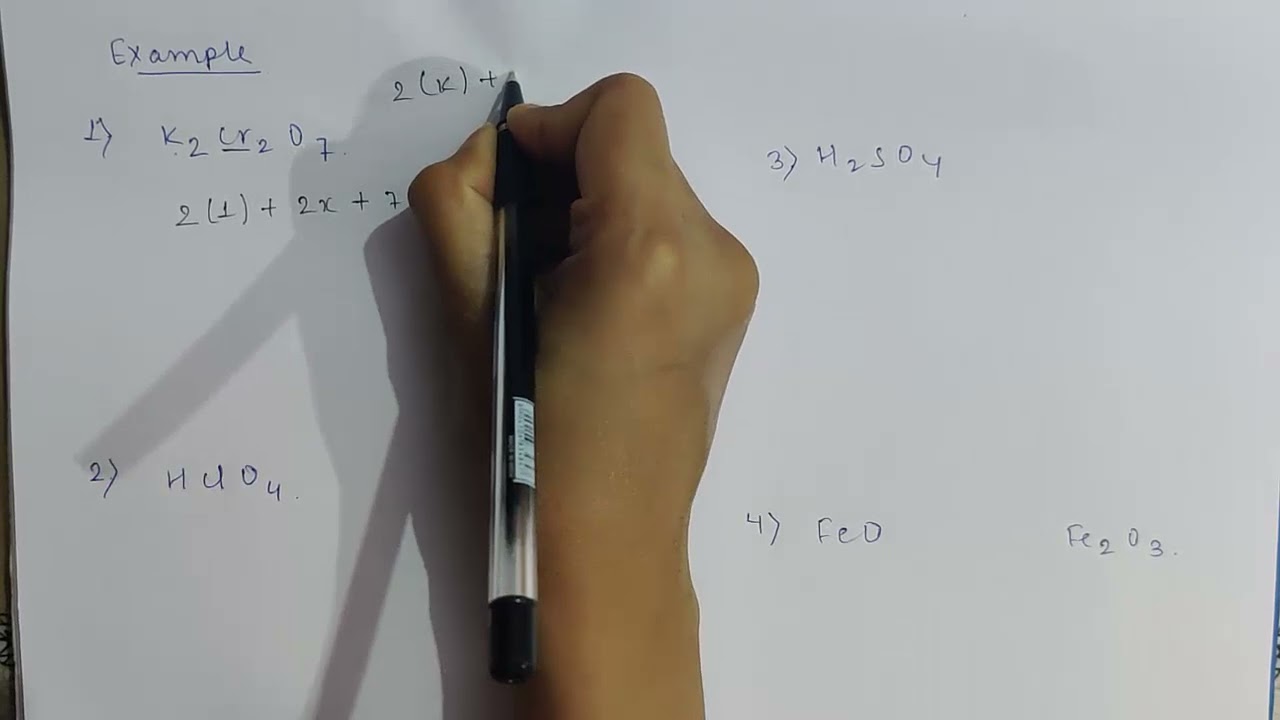 Example
2(K) +
1) K2Cr2O7.
2(1) + 2x + 7
3) H2SO4
2) HClO4.
4) FeO Fe2O3.